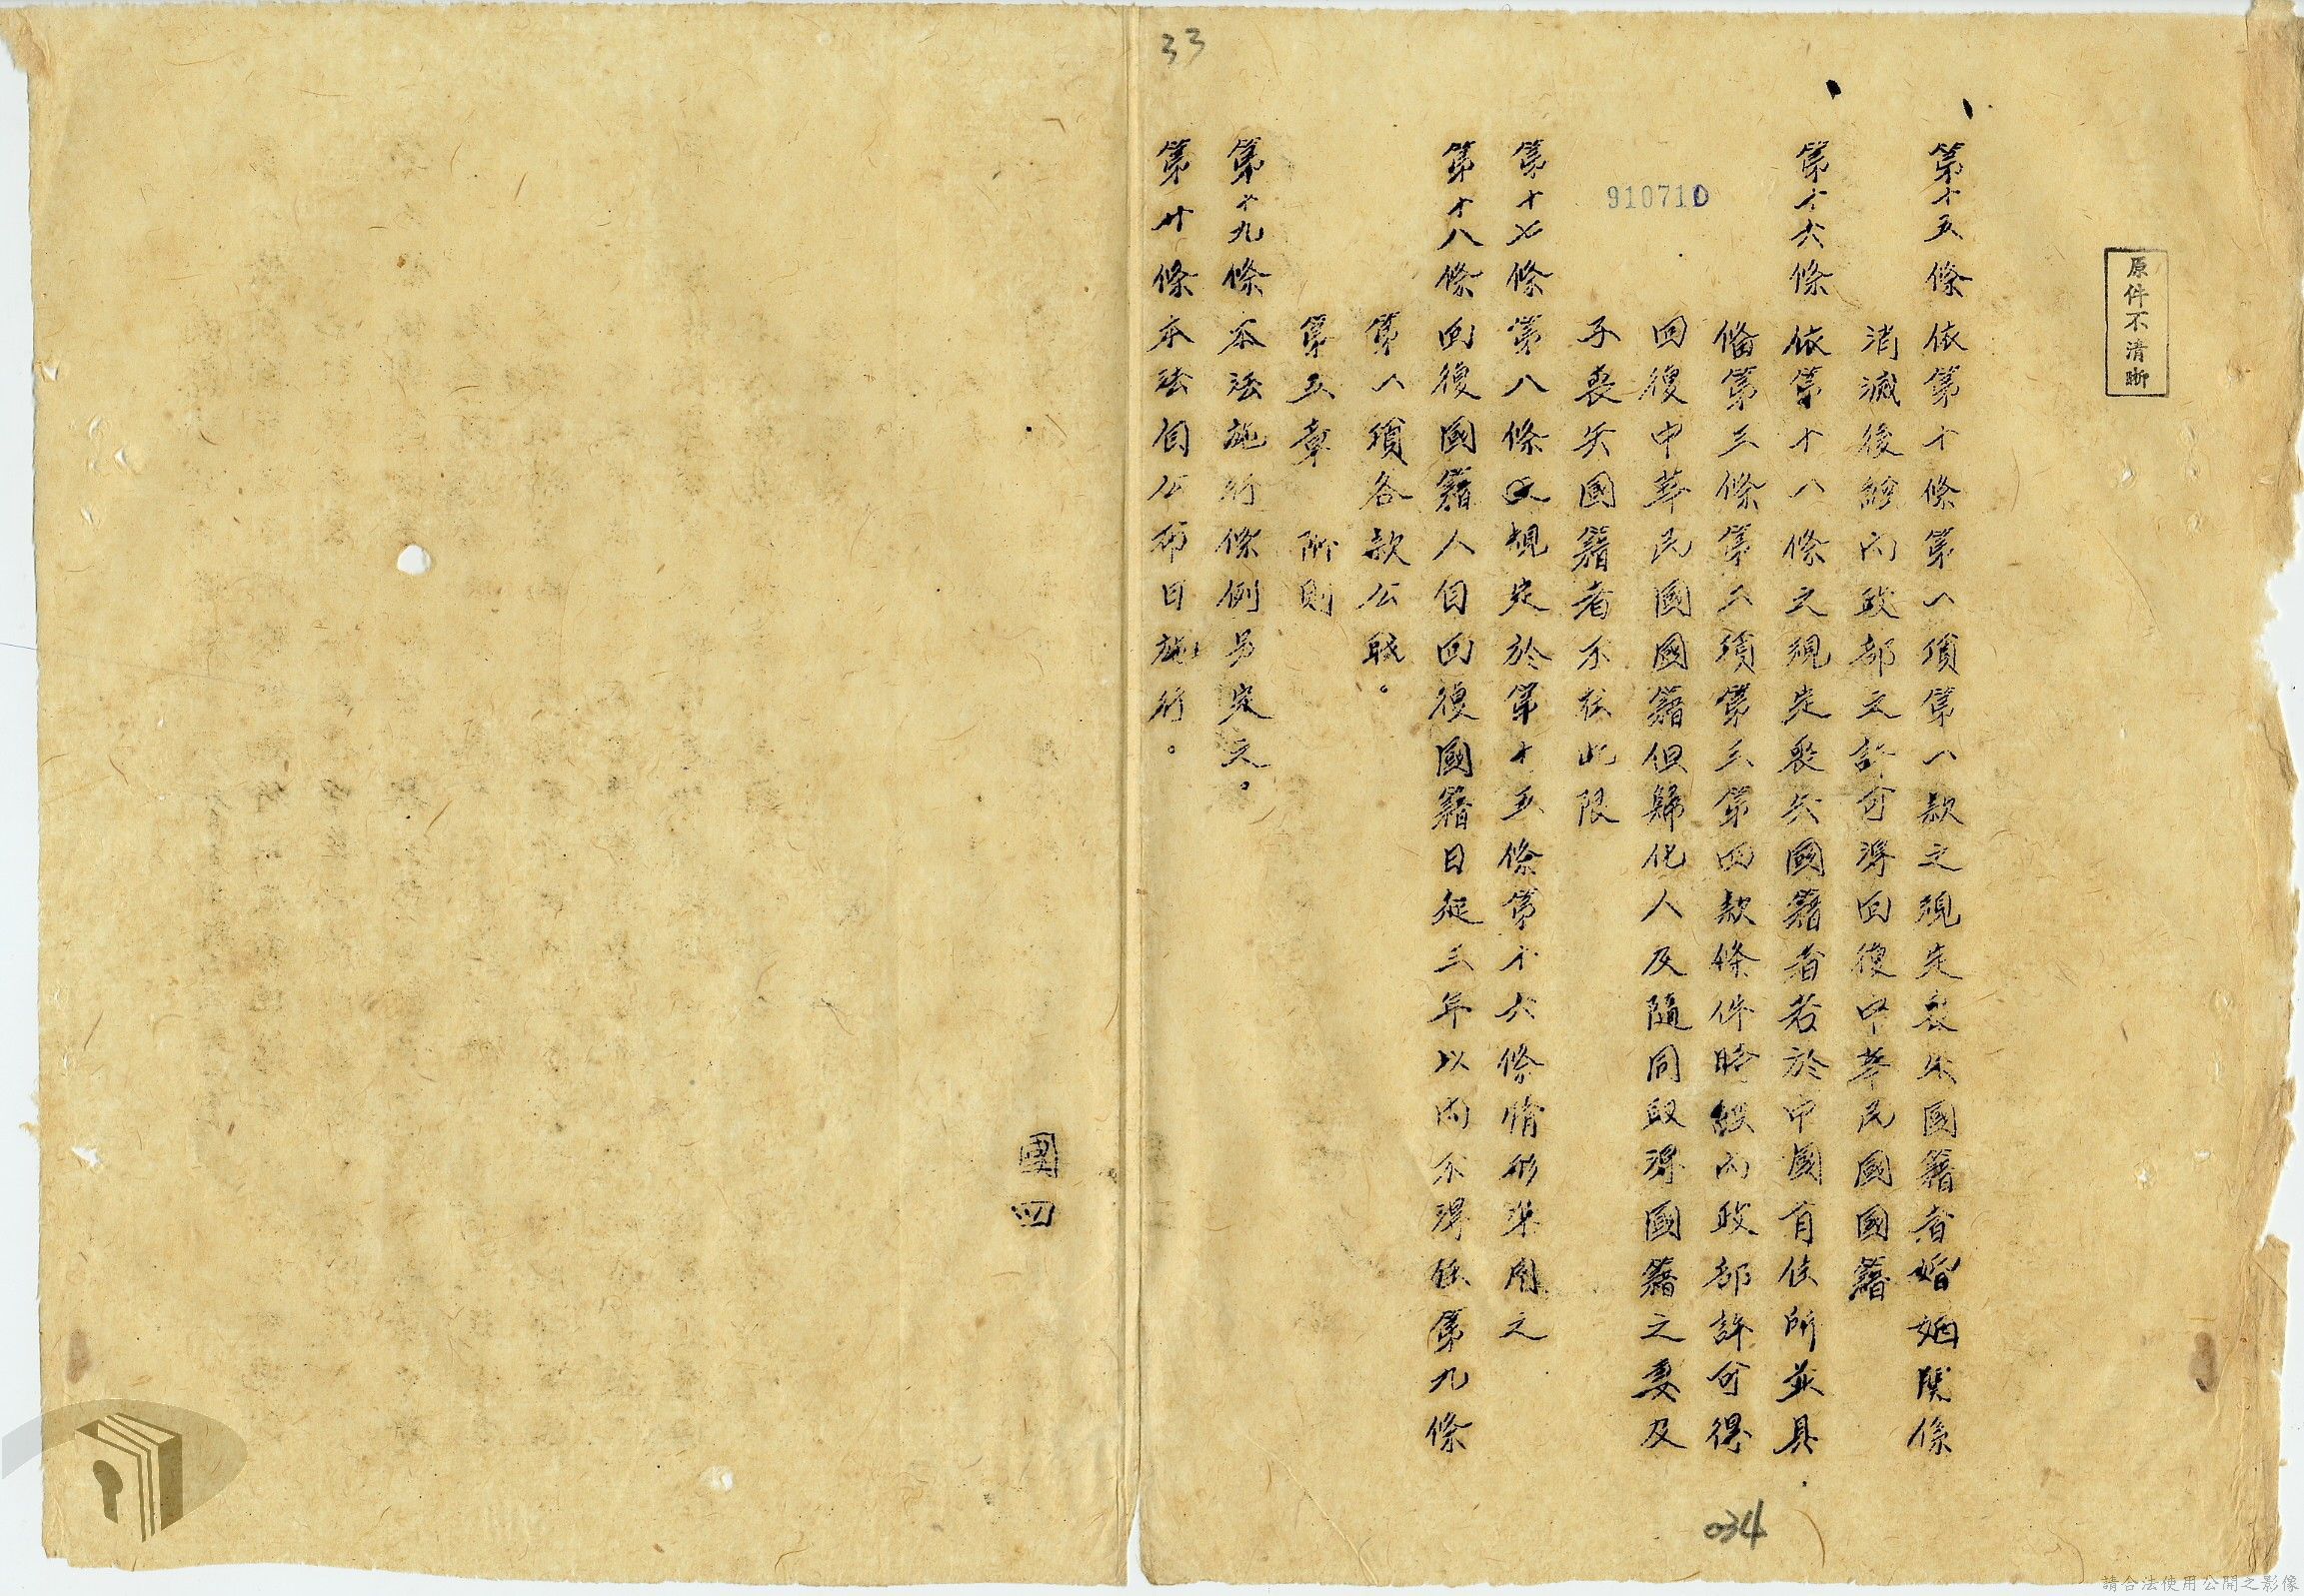 33
原件不清晰
第十五條 依第十條第一項第一款之規定喪失國籍者婚姻關係
消滅後經內政部之許可得回復中華民國國籍
第十六條 依第十一條之規定喪失國籍者若於中國有住所並具
備第三條第二項第三第四款條件時經內政部許可得
回復中華民國國籍但歸化人及隨同取得國籍之妻及
子喪失國籍者不在此限
910710
第十七條 第八條之規定於第十五條第十六條情形準用之
第十八條 回復國籍人自回復國籍日起三年以內不得任第九條
第一項各款公職。
第五章 附則
第十九條 本法施行條例另定之。
第廿條 本法自公布日施行。
國四
034
請合法使用公開之影像